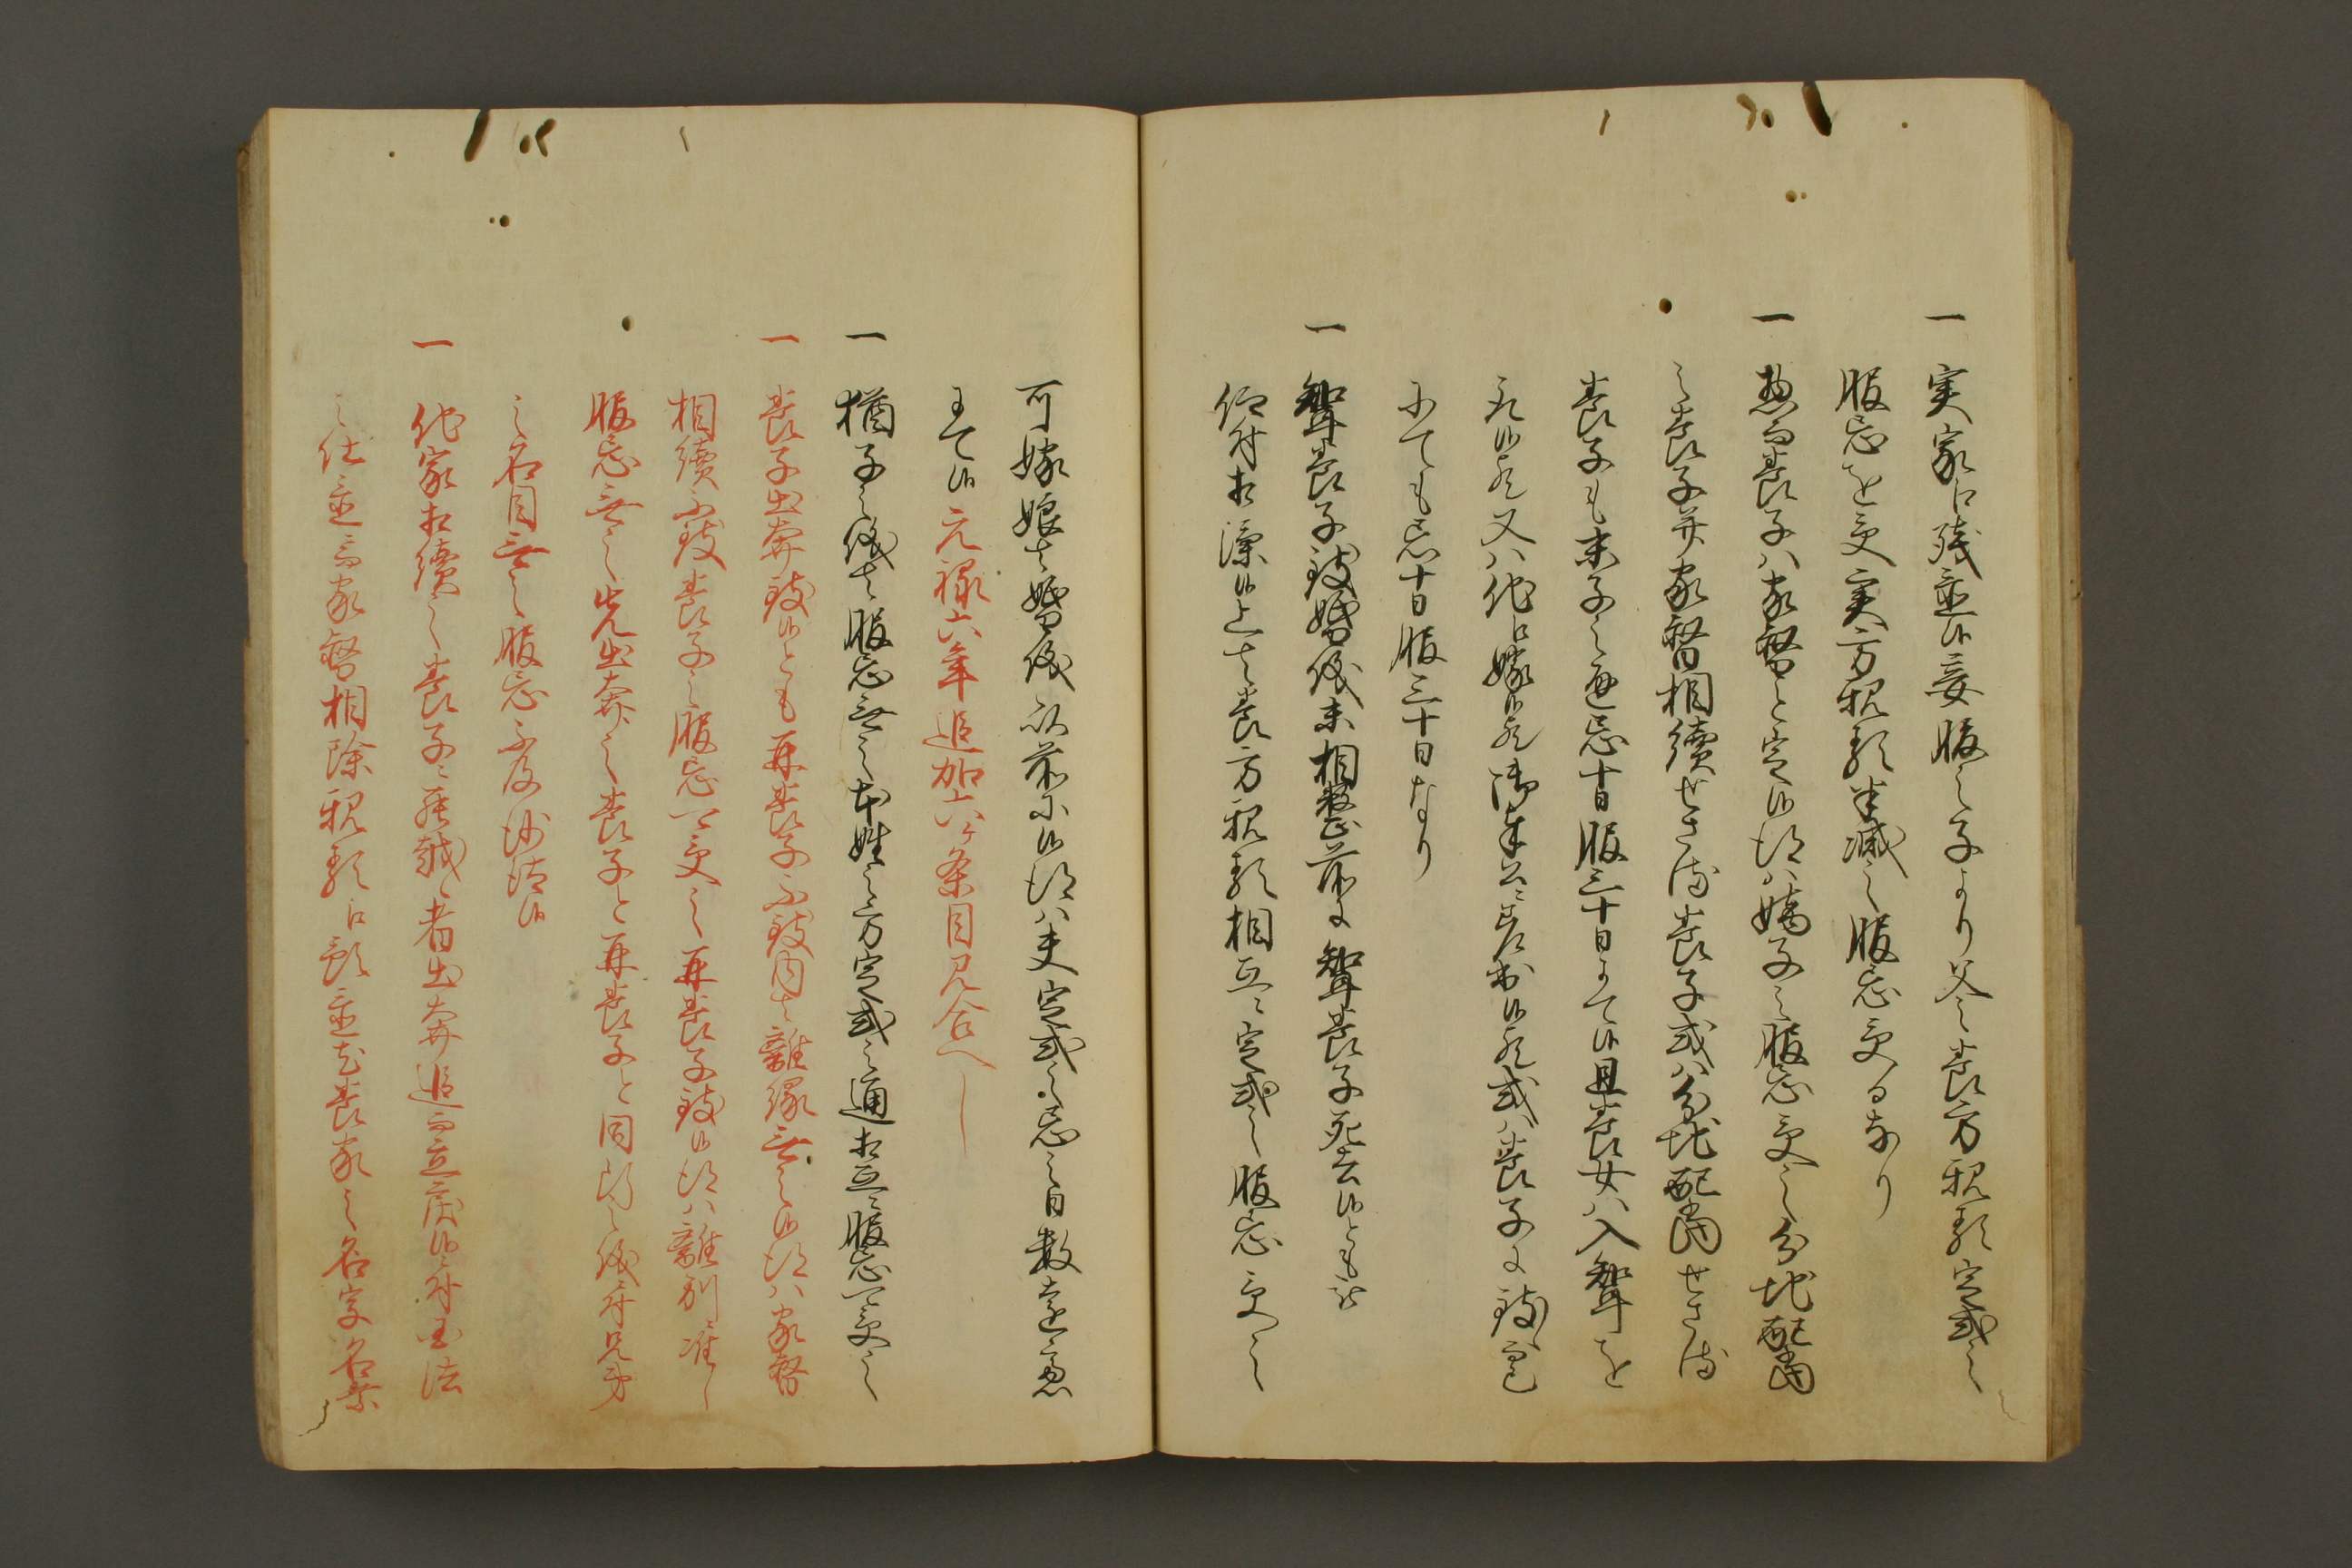 一 実家に残置候妾腹之子より父之養方親類定式之
服忌を受実方親類半減之服忌受るなり
一 惣而養子ハ家督と定候得ハ嫡子之服忌受之分地配当
之養子并家督相続せさる養子或ハ分地配当せさる
養子も末子之通忌十日服三十日にて候且養女ハ入聟を
取候歟又ハ他に嫁候歟御奉公ニ差出候歟或ハ養子に致置
にても忌十日服三十日なり
一 聟養子致婚儀未相整前に聟養子死去候とも被
仰付相済候上者養方親類相互ニ定式之服忌受之
可嫁娘者婚儀以前に候得ハ夫定式之忌之日数遠慮
まて候 元禄六年追加六ケ条目見合へし
一 猶子之儀者服忌無之本姓之方定式之通相互ニ服忌可受之
一 養子出奔致候とも再養子不致内者離縁無之候得ハ家督
相続不致養子之服忌可受之再養子致候得ハ離別ニ准し
服忌無之先出奔之養子と再養子と同断之儀ニ付兄弟
之名目無之服忌不及沙汰候
一 他家相続之養子ニ罷越候者出奔追而立戻候ニ付国法
之仕置ニ而家督相除親類に預置尤養家之名字名乗